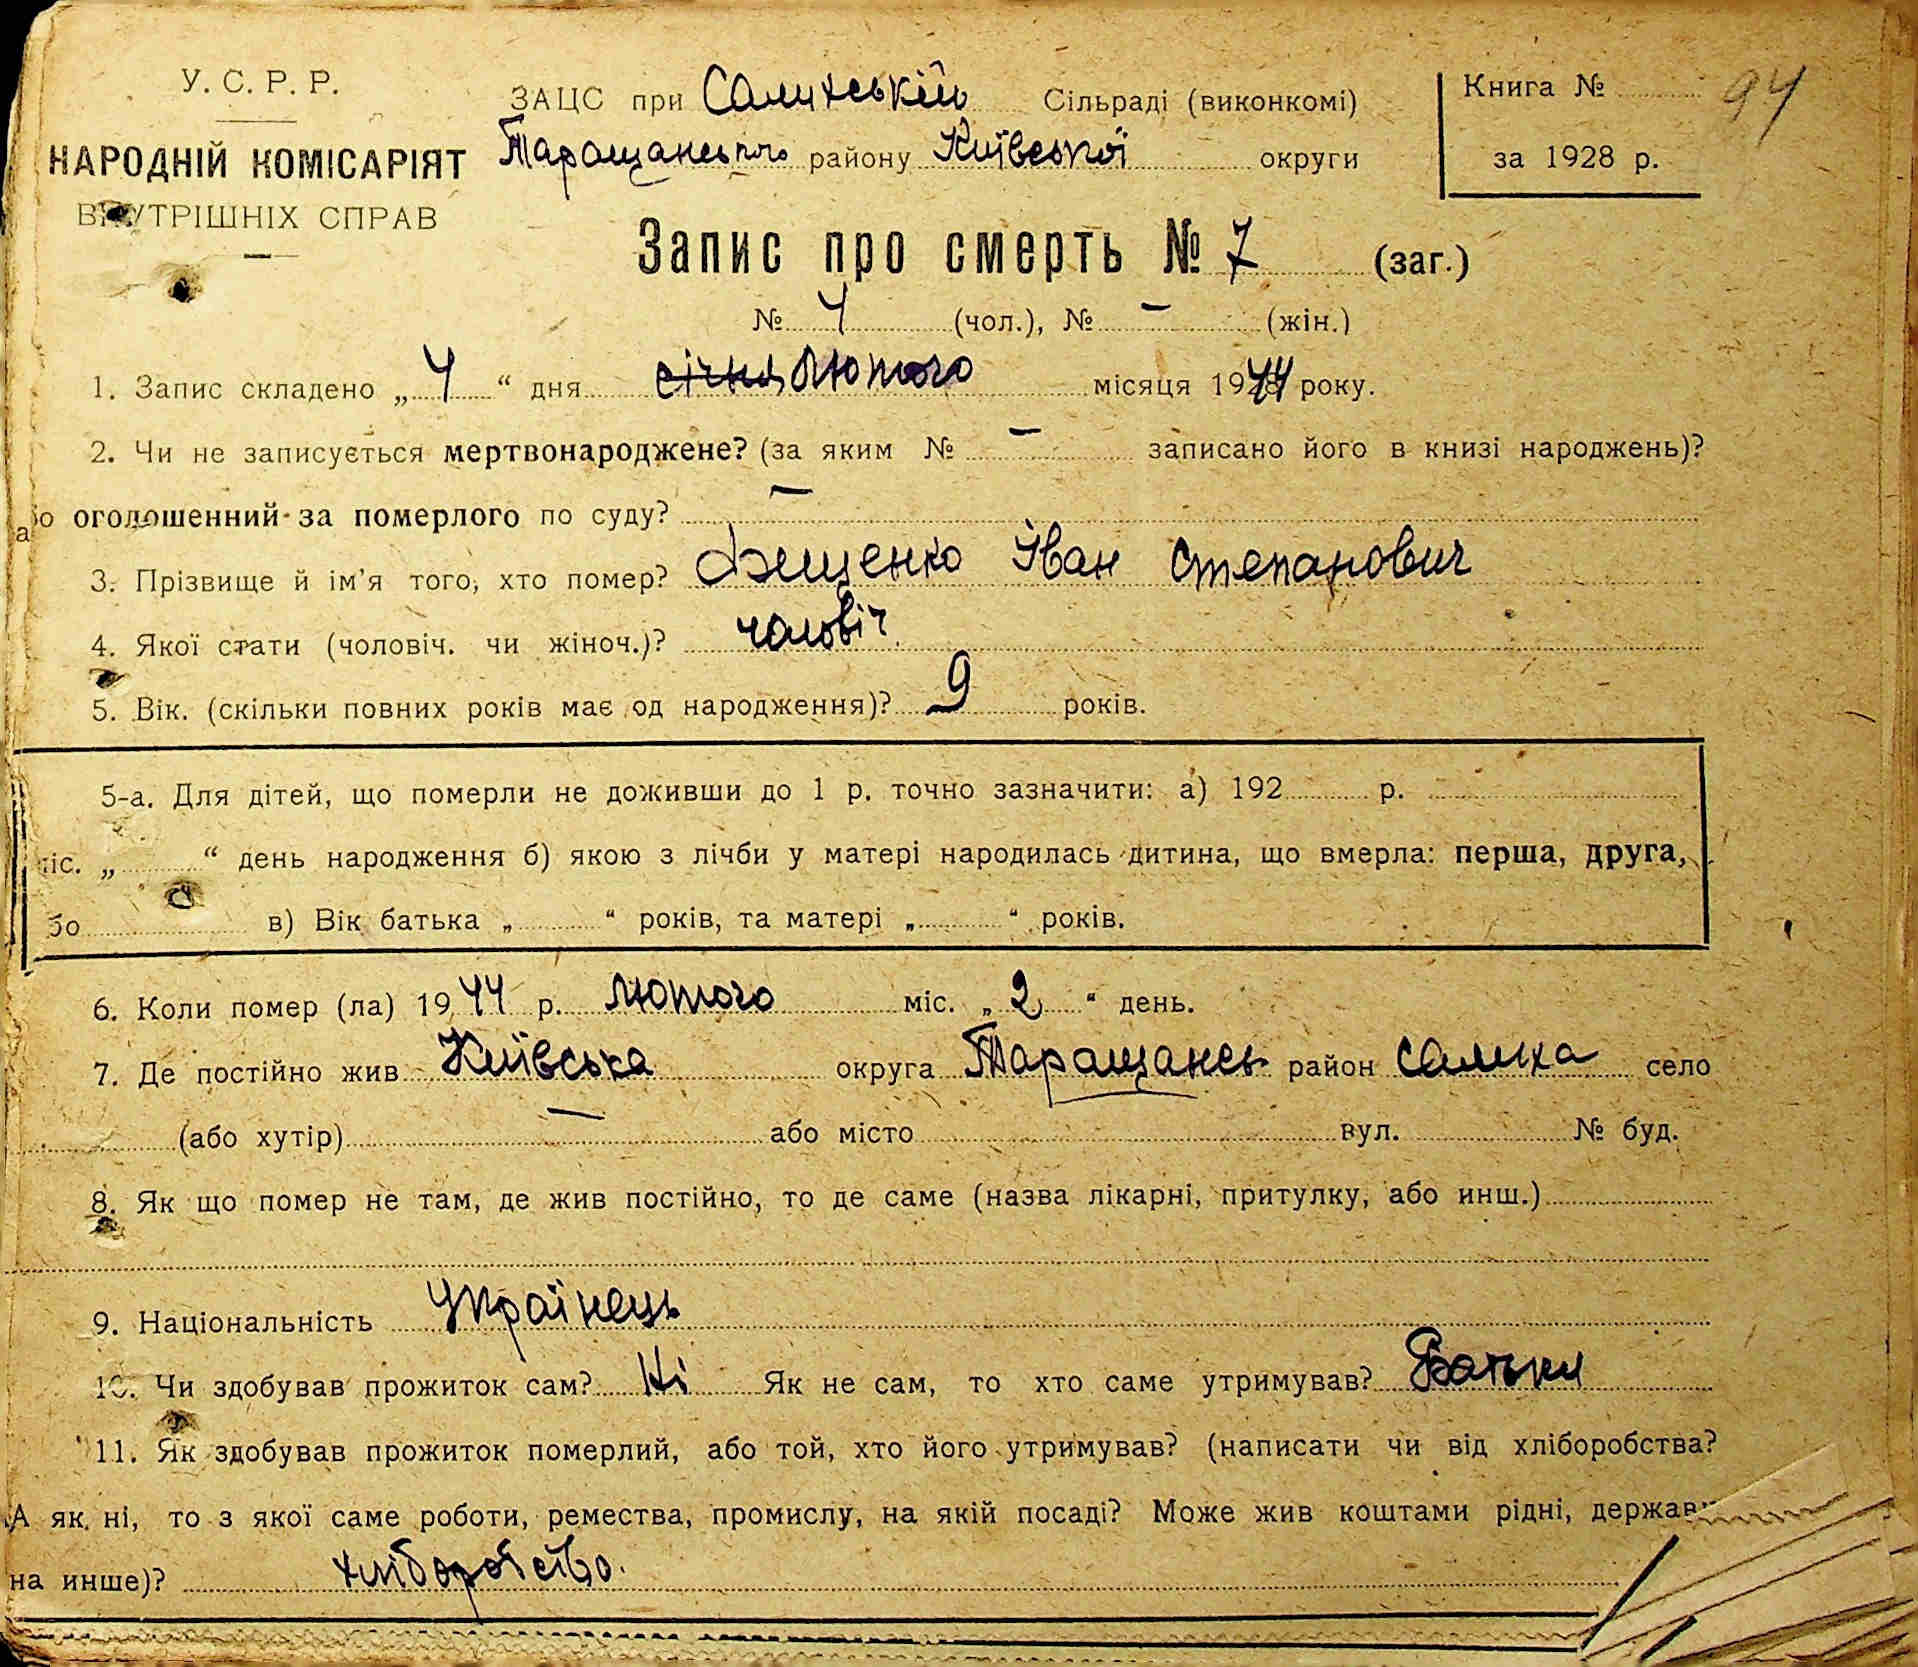 У. С. Р. Р.
НАРОДНІЙ КОМІСАРІЯТ
ВНУТРІШНІХ СПРАВ
ЗАЦС при Салихській Сільраді (виконкомі)
Таращанського району Київської округи
Книга № 94
за 1928 р.
Запис про смерть № 7 (заг.)
№ 4 (чол.), № – (жін.)
1. Запис складено „ 4 “ дня січня лютого місяця 1944 року.
2. Чи не записується мертвонароджене? (за яким № – записано його в книзі народжень)?
або оголошенний за померлого по суду? –
3. Прізвище й ім’я того, хто помер? Іван Степанович
4. Якої стати (чоловіч. чи жіноч.)? чоловіч
5. Вік. (скільки повних років має од народження)? 9 років.
5-а. Для дітей, що померли не доживши до 1 р. точно зазначити: а) 192 р.
міс. „ “ день народження б) якою з лічби у матері народилась дитина, що вмерла: перша, друга,
бо в) Вік батька „ “ років, та матері „ “ років.
6. Коли помер (ла) 1944 р. лютого міс. „ 2 “ день.
7. Де постійно жив Київська округа Таращанськ район Салиха село
(або хутір) – або місто вул. № буд.
8. Як що помер не там, де жив постійно, то де саме (назва лікарні, притулку, або инш.)
9. Національність Українець
10. Чи здобував прожиток сам? Ні Як не сам, то хто саме утримував? Батьки
11. Як здобував прожиток померлий, або той, хто його утримував? (написати чи від хліборобства?
А як ні, то з якої саме роботи, ремества, промислу, на якій посаді? Може жив коштами рідні, держав
на инше)? хліборобство.